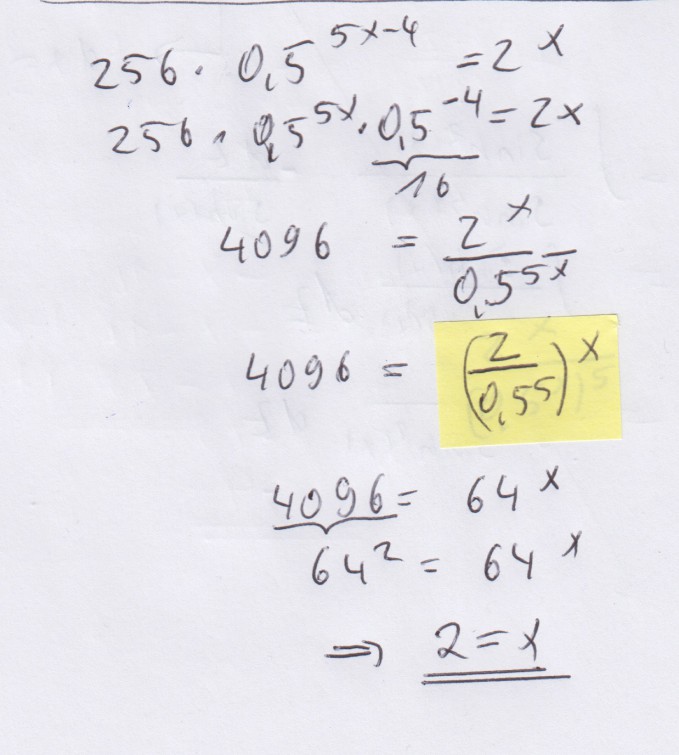 256 · 0,5^(5x-4) = 2^x
256 · 0,5^(5x) · 0,5^(-4) = 2x
16
4096 = 2^x / 0,5^(5x)
4096 = (2 / 0,5^5)^x
4096 = 64^x
64^2 = 64^x
⇒ 2 = x